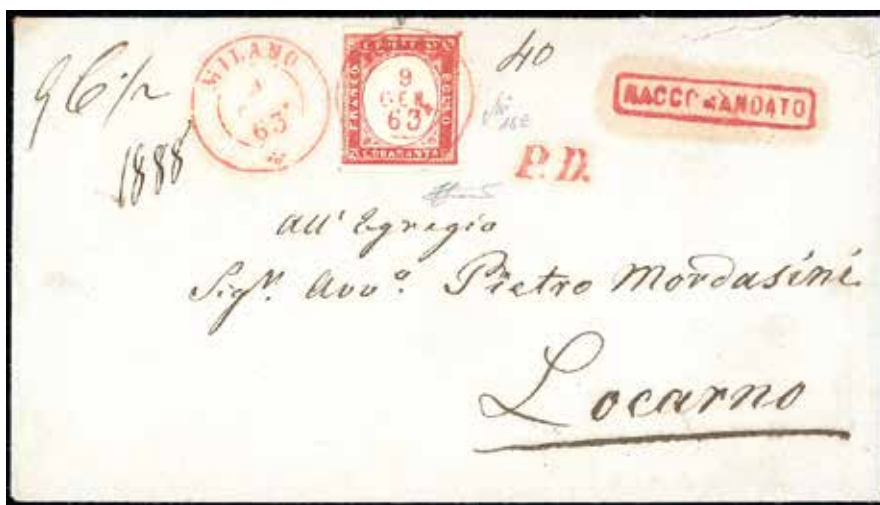 MILANO
63
FRANCO
BOLLO
QUARANTA
9
GEN
63
40
RACCOMANDATO
1888
P.D.
All' Egregio
Sigr. Avvo. Pietro Mordasini
Locarno